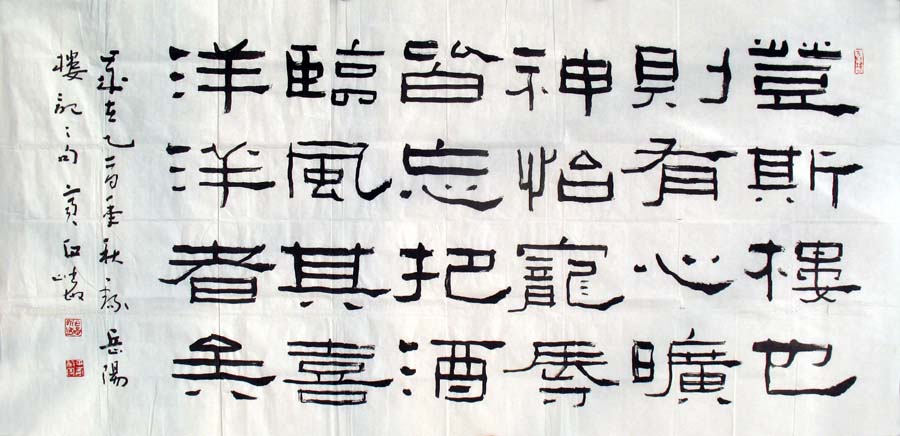 登斯樓也
則有心曠
神怡寵辱
皆忘把酒
臨風其喜
洋洋者矣
歲在乙酉季秋錄岳陽
樓記之句